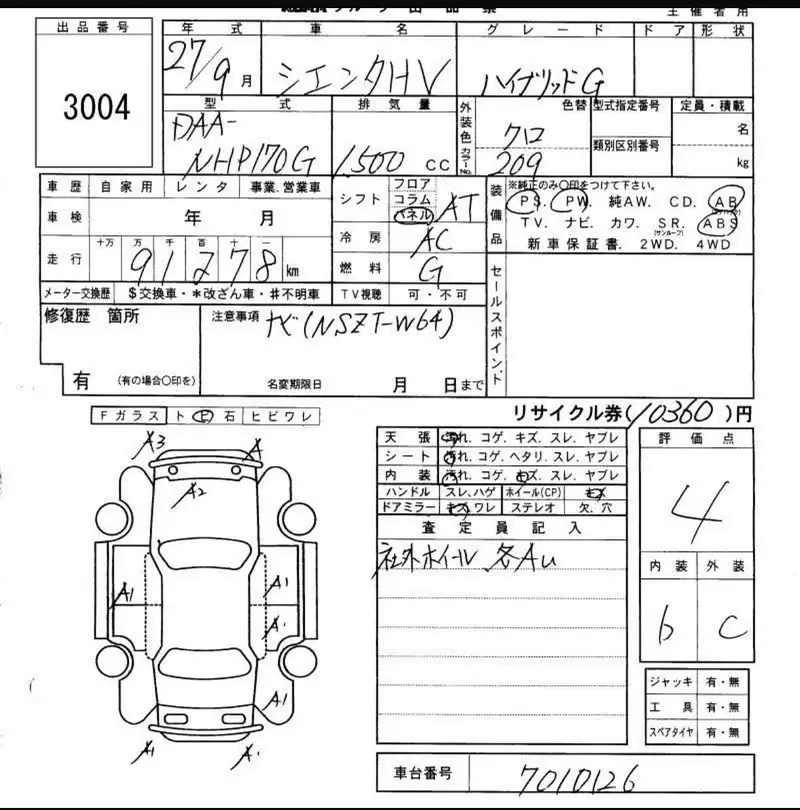 主催者用
出品番号
3004
年式 車名 グレード ドア 形状
27/9月 シエンタHV ハイブリッドG
型式 排気量 外装色 色替 型式指定番号 定員・積載
DAA-
NHP170G 1,500 CC クロ 類別区別番号 名
カラーNo. 209 kg
車歴 自家用 レンタ 事業.営業車
シフト フロア コラム パネル AT
装備品 ※純正のみ○印をつけて下さい。
PS. PW. 純AW. CD. AB
(エアバッグ)
TV. ナビ. カワ. SR. ABS
(サンルーフ)
新車保証書. 2WD. 4WD
車検 年 月
冷房 AC
走行 十万 万 千 百 十 一
91278 km
燃料 G
メーター交換歴 $交換車・*改ざん車・#不明車 TV視聴 可・不可
セールスポイント
修復歴 箇所
有 (有の場合○印を)
注意事項 ナビ(NSZT-W64)
名変期限日 月 日まで
リサイクル券(10360)円
Fガラス ト ビ 石 ヒビワレ
A3 A
A2
A1 A1
A1
A1
A1 A1
天張 汚れ. コゲ. キズ. スレ. ヤブレ
シート 汚れ. コゲ. ヘタリ. スレ. ヤブレ
内装 汚れ. コゲ. キズ. スレ. ヤブレ
ハンドル スレ.ハゲ ホイール(CP) キズ
ドアミラー キズ.ワレ ステレオ 欠.穴
査定員記入
社外ホイール 各Au
評価点
4
内装 外装
b C
ジャッキ 有・無
工具 有・無
スペアタイヤ 有・無
車台番号 7010126